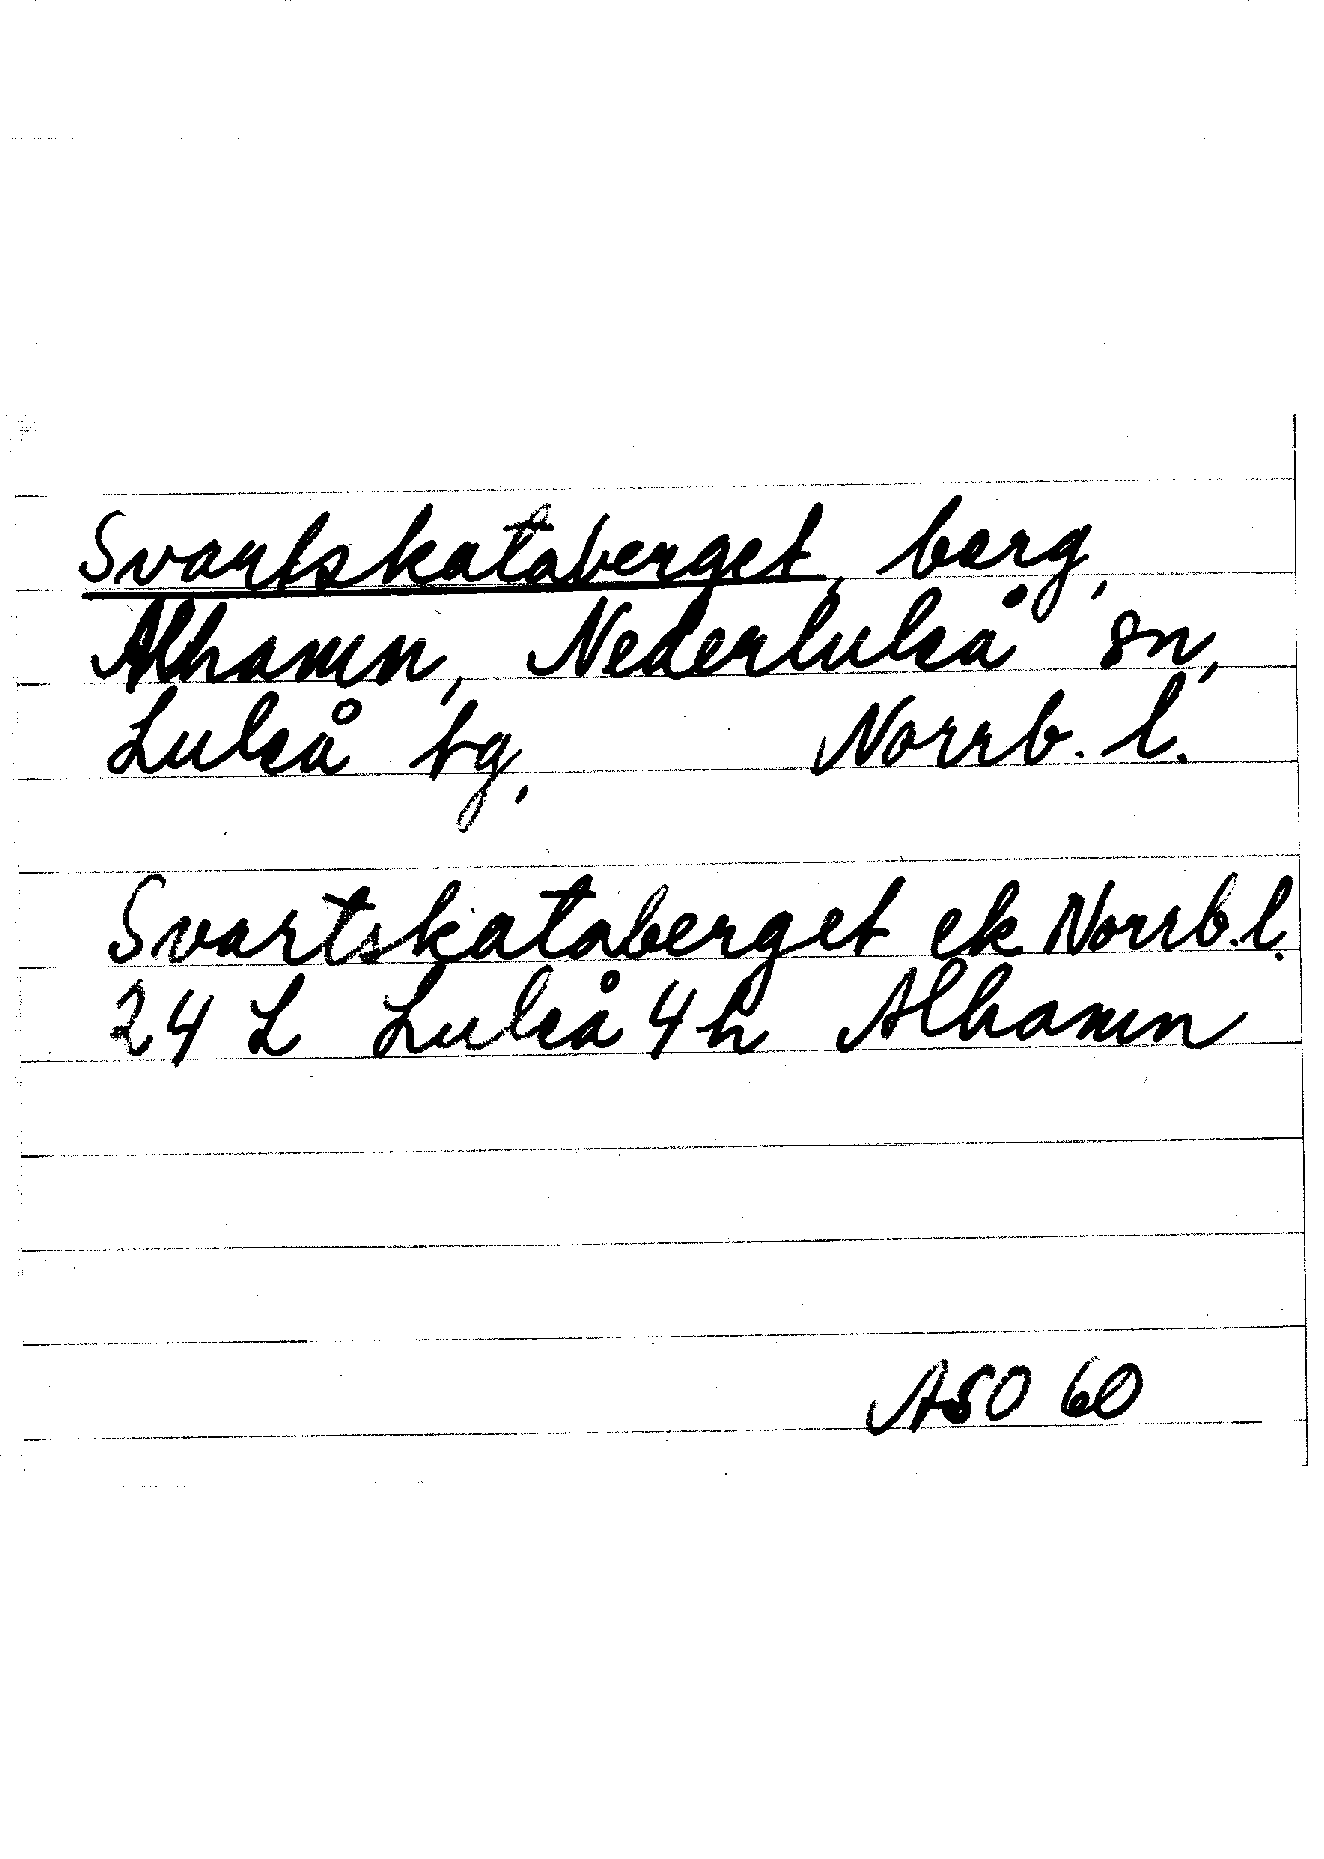 Svartskataberget, berg,
Alhamn, Nederluleå sn,
Luleå tg, Norrb. l.
Svartskataberget ek Norrb. l.
24 L Luleå 4h Alhamn
ASO 60